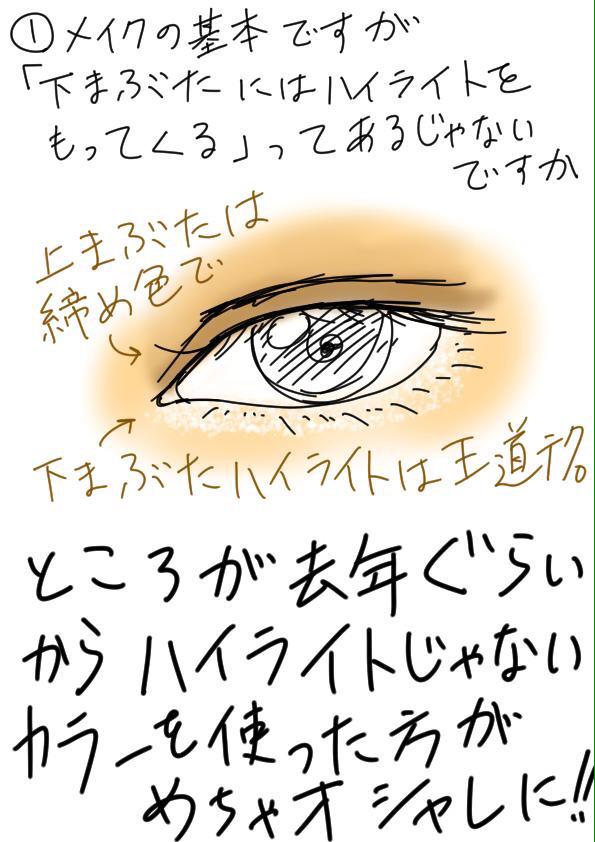 ①メイクの基本ですが
「下まぶたにはハイライトを
もってくる」ってあるじゃない
ですか
上まぶたは
締め色で
下まぶたハイライトは王道テク。
ところが去年ぐらい
からハイライトじゃない
カラーを使った方が
めちゃオシャレに!!